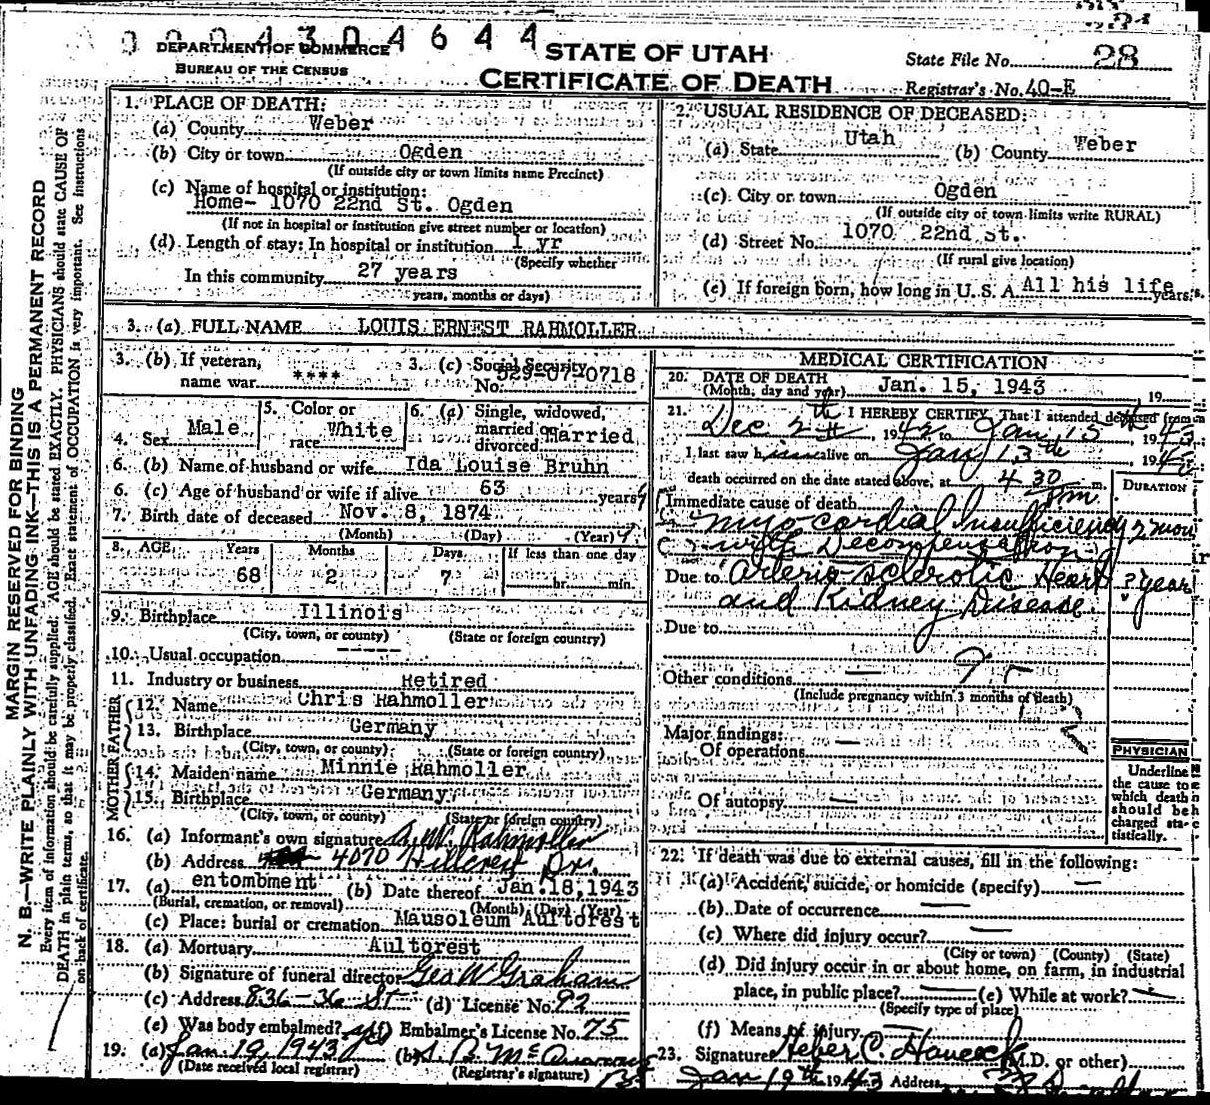 0 0 0 4 3 0 4 6 4 4
DEPARTMENT OF COMMERCE
BUREAU OF THE CENSUS
STATE OF UTAH
CERTIFICATE OF DEATH
State File No. 28
Registrar's No. 40-E
MARGIN RESERVED FOR BINDING
N. B.—WRITE PLAINLY WITH UNFADING INK—THIS IS A PERMANENT RECORD
Every item of information should be carefully supplied. AGE should be stated EXACTLY. PHYSICIANS should state CAUSE OF
DEATH in plain terms, so that it may be properly classified. Exact statement of OCCUPATION is very important. See instructions
on back of certificate.
1. PLACE OF DEATH:
(a) County Weber
(b) City or town Ogden
(If outside city or town limits name Precinct)
(c) Name of hospital or institution:
Home- 1070 22nd St. Ogden
(If not in hospital or institution give street number or location)
(d) Length of stay: In hospital or institution 1 yr
(Specify whether
In this community 27 years
years, months or days)
2. USUAL RESIDENCE OF DECEASED:
(a) State Utah (b) County Weber
(c) City or town Ogden
(If outside city or town limits write RURAL)
(d) Street No. 1070 22nd St.
(If rural give location)
(e) If foreign born, how long in U. S. A. All his life years.
3. (a) FULL NAME LOUIS ERNEST RAHMOLLER
3. (b) If veteran, name war ****
3. (c) Social Security No. 529-07-0718
4. Sex Male
5. Color or race White
6. (a) Single, widowed, married or divorced Married
6. (b) Name of husband or wife Ida Louise Bruhn
6. (c) Age of husband or wife if alive 63 years
7. Birth date of deceased Nov. 8, 1874
(Month) (Day) (Year)
8. AGE Years Months Days If less than one day
68 2 7 hr. min.
9. Birthplace Illinois
(City, town, or county) (State or foreign country)
10. Usual occupation -----
11. Industry or business Retired
FATHER
12. Name Chris Rahmoller
13. Birthplace Germany
(City, town, or county) (State or foreign country)
MOTHER
14. Maiden name Minnie Rahmoller
15. Birthplace Germany
(City, town, or county) (State or foreign country)
16. (a) Informant's own signature Rahmoller
(b) Address 4070 Hillcrest Dr.
17. (a) entombment (b) Date thereof Jan. 18, 1943
(Burial, cremation, or removal) (Month) (Day) (Year)
(c) Place: burial or cremation Mausoleum Aultorest
18. (a) Mortuary Aultorest
(b) Signature of funeral director Geo W Graham
(c) Address 836-36 St (d) License No. 92
(e) Was body embalmed? yes (f) Embalmer's License No. 75
19. (a) Jan. 19, 1943 (b)
(Date received local registrar) (Registrar's signature)
MEDICAL CERTIFICATION
20. DATE OF DEATH
(Month, day and year) Jan. 15, 1943 19
21. I HEREBY CERTIFY, That I attended deceased from
Dec 2th, 1942 to Jan 15th 1943
I last saw him alive on Jan 13th 1943
death occurred on the date stated above, at 4 30 Pm m.
DURATION
Immediate cause of death
myocordial Insufficiency 2 mou
with Decompensation
Due to Arterio sclerotic Heart ? year
and Kidney Disease
Due to
Other conditions —
(Include pregnancy within 3 months of death)
Major findings:
Of operations —
Of autopsy —
PHYSICIAN
Underline
the cause to
which death
should be
charged sta-
tistically.
22. If death was due to external causes, fill in the following:
(a) Accident, suicide, or homicide (specify) —
(b) Date of occurrence —
(c) Where did injury occur? —
(City or town) (County) (State)
(d) Did injury occur in or about home, on farm, in industrial
place, in public place? — (e) While at work? —
(Specify type of place)
(f) Means of injury —
23. Signature Heber C. Hancock (M.D. or other)
Jan 19th 1943 Address